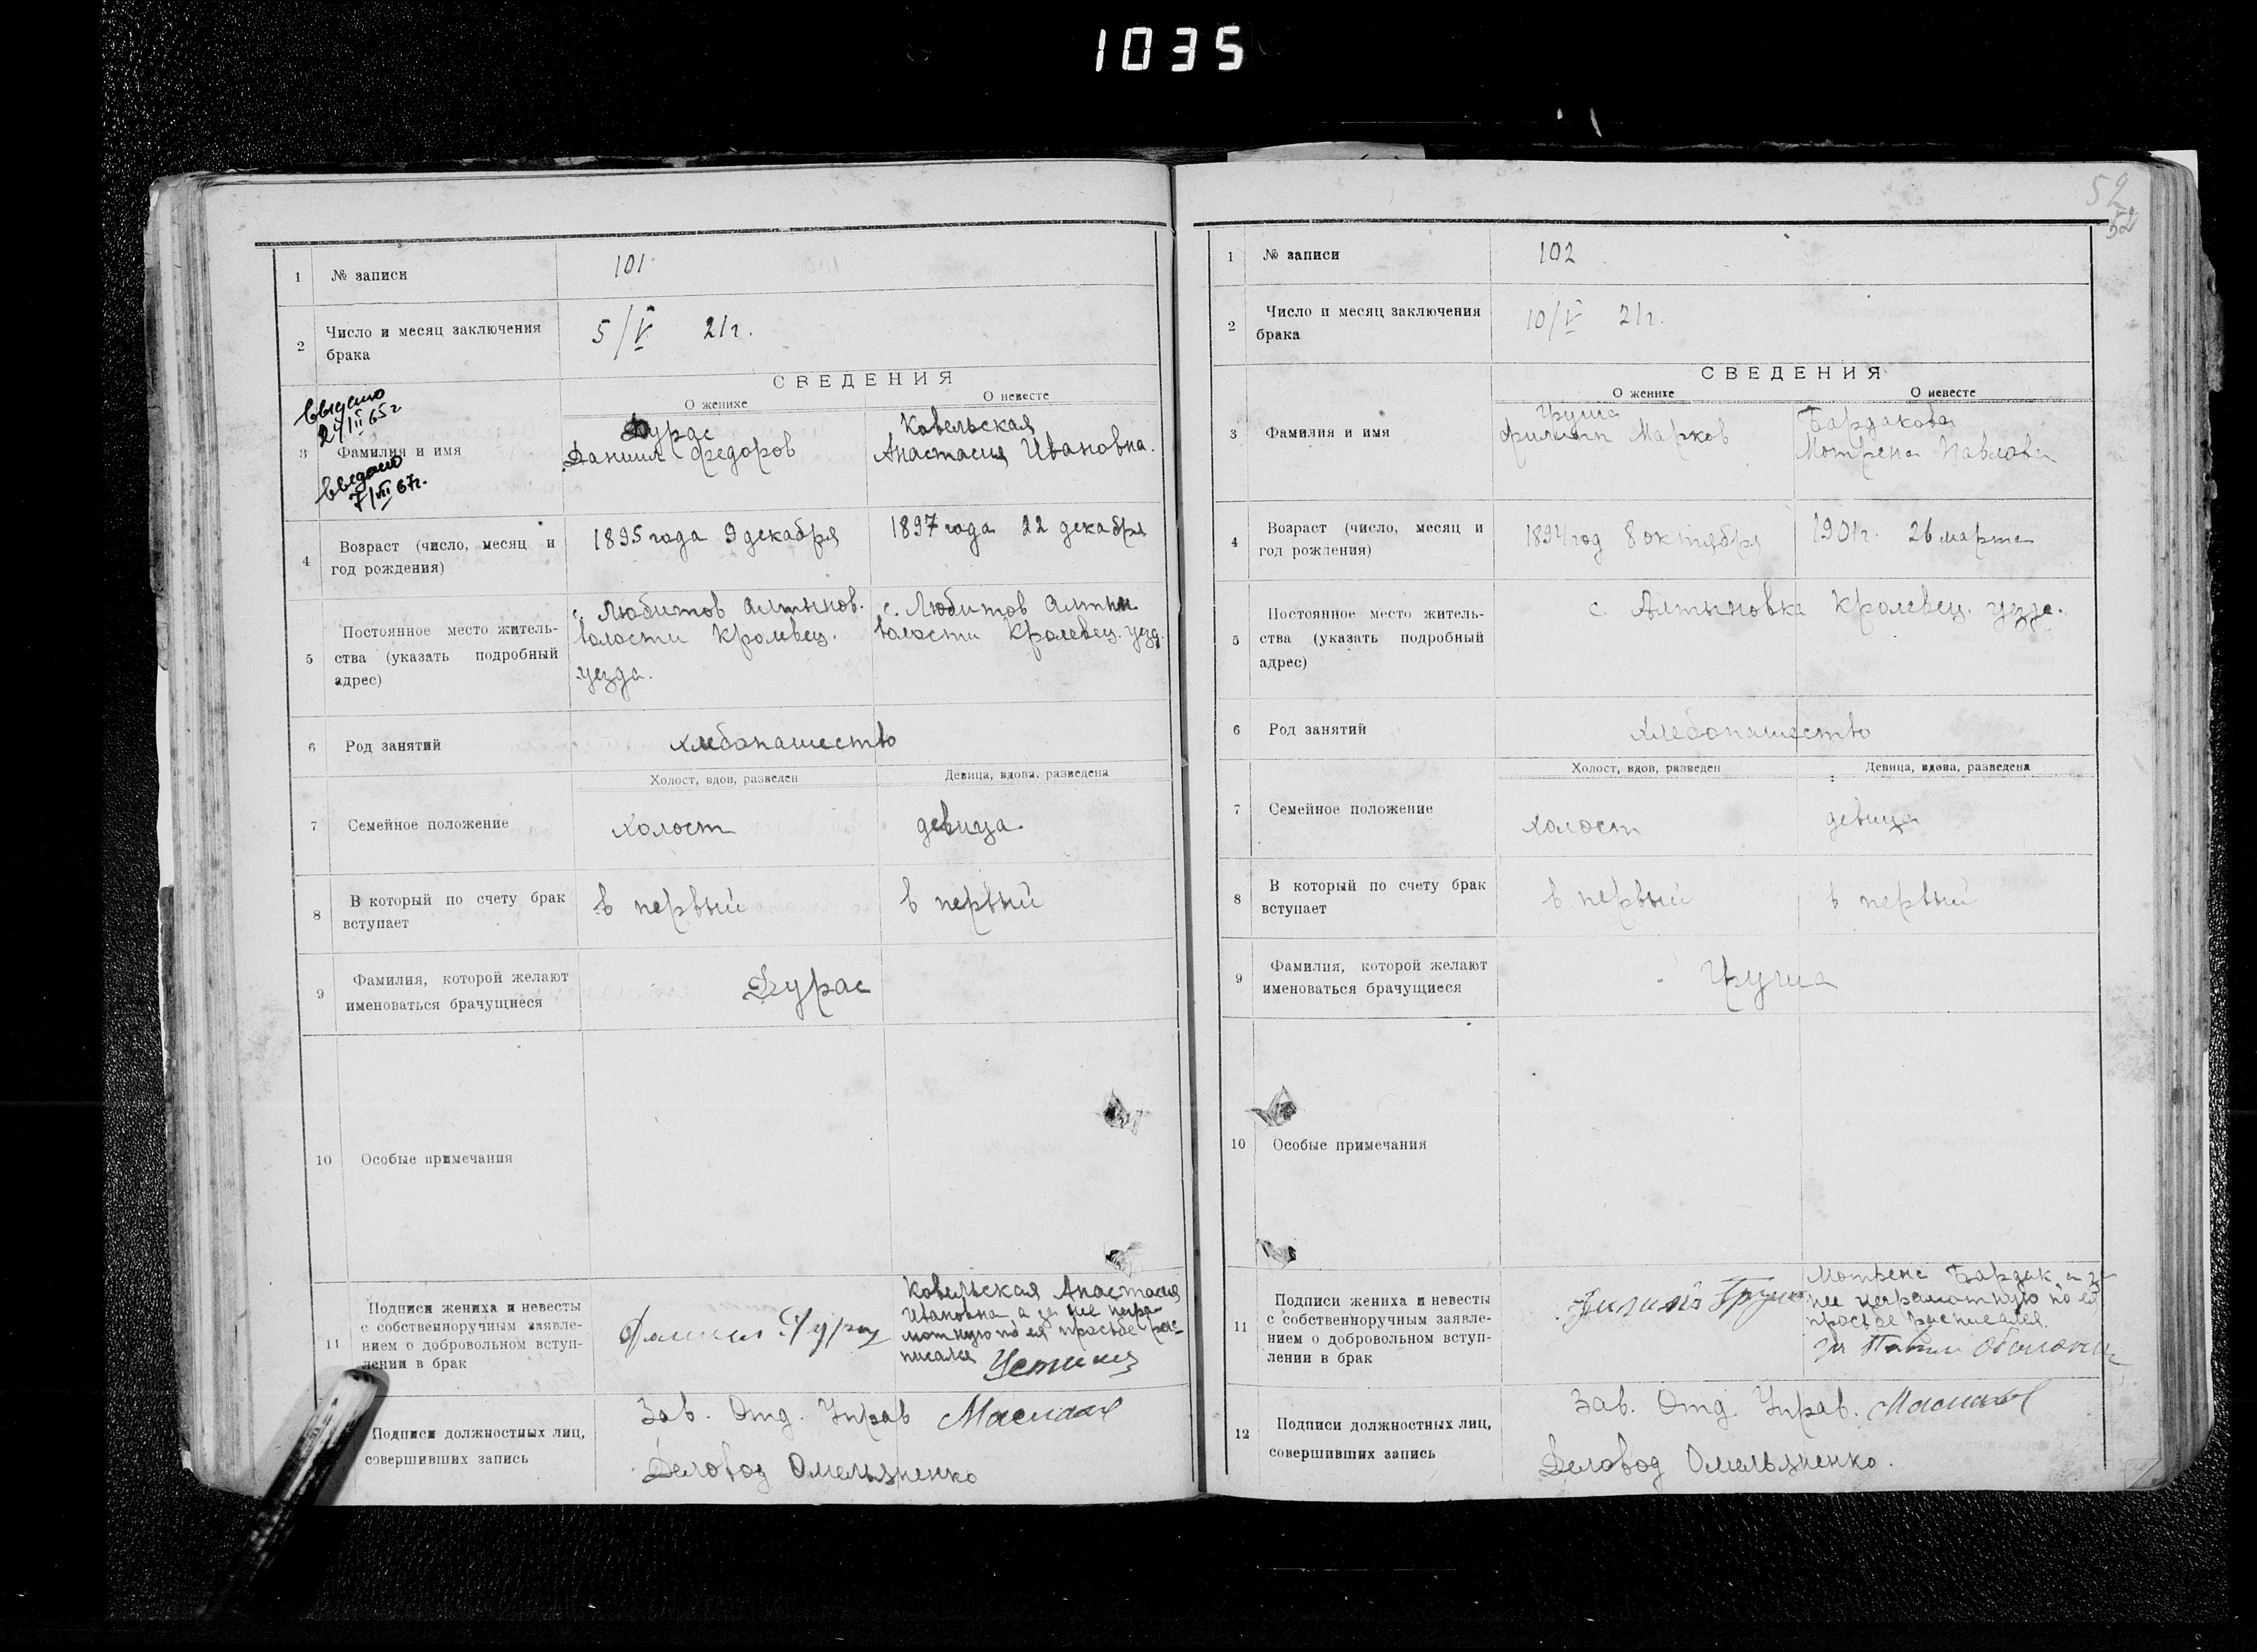 1035
1 № записи 101
2 Число и месяц заключения
брака
5/V 21 г.
СВЕДЕНИЯ
О женихе О невесте
выдано
24/II 65 г
3 Фамилия и имя
выдано
7/VII 67 г.
Дурас
Даниил Федоров
Ковельская
Анастасия Ивановна.
4 Возраст (число, месяц и
год рождения)
1895 года 9 декабря
1897 года 22 декабря
5 Постоянное место житель-
ства (указать подробный
адрес)
с. Любитов Алтынов.
волости Кролевец.
уезда.
с. Любитов Алтын
волости Кролевец. уезд.
6 Род занятий хлебопашество
Холост, вдов, разведен Девица, вдова, разведена
7 Семейное положение холост девица
8 В который по счету брак
вступает
в первый в первый
9 Фамилия, которой желают
именоваться брачущиеся
Дурас
10 Особые примечания
11 Подписи жениха и невесты
с собственноручным заявле-
нием о добровольном вступ-
лении в брак
Даниил Дурас
Ковельская Анастасия
Ивановна а за нее негра-
мотную по ея просьбе рас-
писался
Подписи должностных лиц,
совершивших запись
Зав. Отд. Управ
Деловод Омельяненко
52
52
1 № записи 102
2 Число и месяц заключения
брака
10/V 21 г.
СВЕДЕНИЯ
О женихе О невесте
3 Фамилия и имя
Груша
Филипп Марков
Бардакова
Мотрена Павлова
4 Возраст (число, месяц и
год рождения)
1894 год 8 октября
1901 г. 26 марта
5 Постоянное место житель-
ства (указать подробный
адрес)
с. Алтыновка Кролевец. уезд.
6 Род занятий хлебопашество
Холост, вдов, разведен Девица, вдова, разведена
7 Семейное положение холост девица
8 В который по счету брак
вступает
в первый в первый
9 Фамилия, которой желают
именоваться брачущиеся
Груша
10 Особые примечания
11 Подписи жениха и невесты
с собственноручным заявле-
нием о добровольном вступ-
лении в брак
Груша
Мотрена Бардак, а за
нее неграмотную по ея
просьбе расписался
12 Подписи должностных лиц,
совершивших запись
Зав. Отд. Управ.
Деловод Омельяненко.